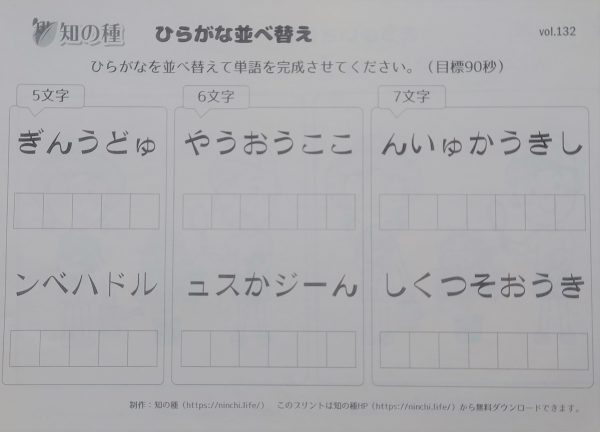 知の種 ひらがな並べ替え vol.132
ひらがなを並べ替えて単語を完成させてください。（目標90秒）
5文字 6文字 7文字
ぎんうどゅ やうおうここ んいゅかうきし
ンベハドル ュスかジーん しくつそおうき
制作：知の種（https://ninchi.life/） このプリントは知の種HP（https://ninchi.life/）から無料ダウンロードできます。